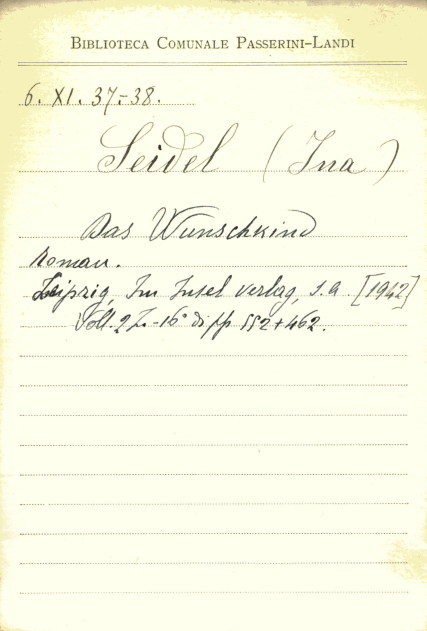 BIBLIOTECA COMUNALE PASSERINI-LANDI
6. XI. 37-38.
Seidel (Ina)
Das Wunschkind
Roman.
Leipzig, Im Insel verlag, s.a. [1942]
Voll. 2 -16° di pp 552+462.